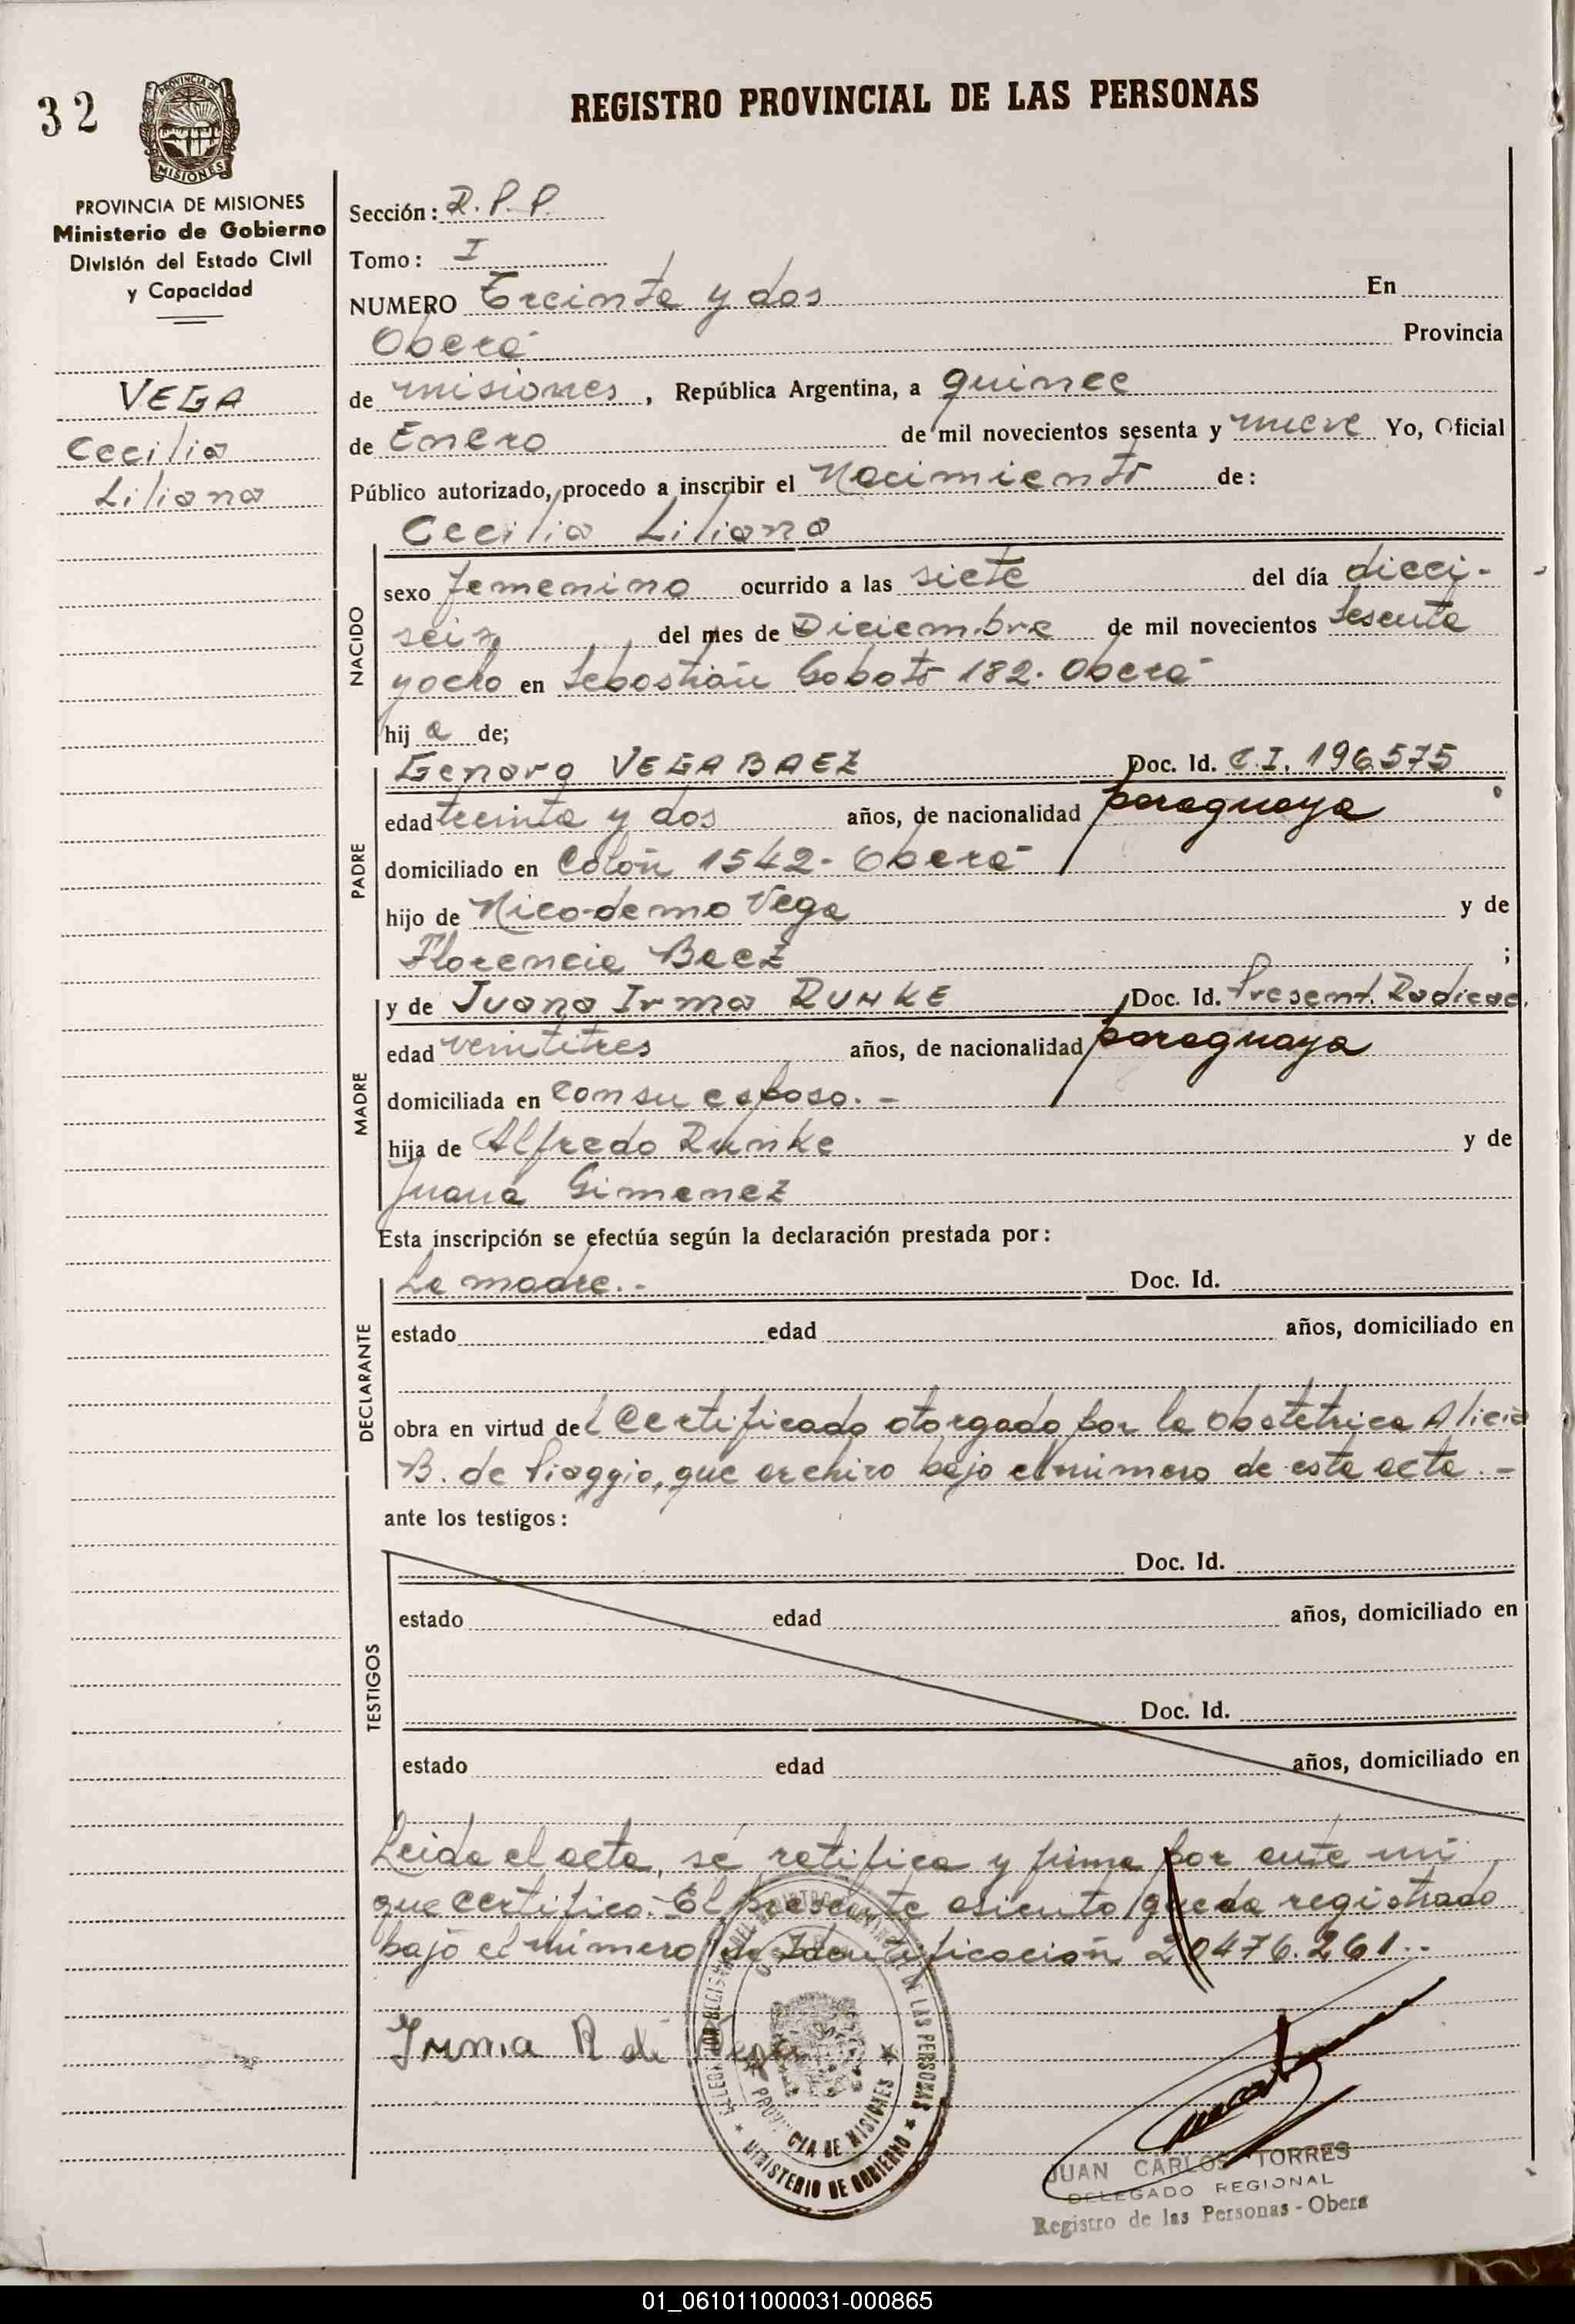 32
PROVINCIA DE
MISIONES
REGISTRO PROVINCIAL DE LAS PERSONAS
PROVINCIA DE MISIONES
Ministerio de Gobierno
División del Estado Civil
y Capacidad
VEGA
Cecilia
Liliana
Sección: R.P.P.
Tomo: I
NUMERO Treinta y dos En
Oberá Provincia
de misiones, República Argentina, a quince
de Enero de mil novecientos sesenta y nueve Yo, Oficial
Público autorizado, procedo a inscribir el Nacimiento de:
Cecilia Liliana
NACIDO
sexo femenino ocurrido a las siete del día dieci-
seis del mes de Diciembre de mil novecientos sesenta
yocho en Sebastián Gaboto 182. Oberá
hij a de;
PADRE
Genaro VEGA BAEZ Doc. Id. C.I. 196.575
edad treinta y dos años, de nacionalidad paraguaya
domiciliado en Colón 1542- Oberá
hijo de Nico-demo Vega y de
Florencia Baez ;
MADRE
y de Juana Irma RUNKE Doc. Id. Present. Radicac.
edad veintitres años, de nacionalidad paraguaya
domiciliada en con su esposo. -
hija de Alfredo Runke y de
Juana Gimenez
Esta inscripción se efectúa según la declaración prestada por:
DECLARANTE
La madre.- Doc. Id.
estado edad años, domiciliado en
obra en virtud del Certificado otorgado por la obstétrica Alicia
B. de Piaggio, que archivo bajo el número de esta acta. -
ante los testigos:
TESTIGOS
Doc. Id.
estado edad años, domiciliado en
Doc. Id.
estado edad años, domiciliado en
Leida el acta, se ratifica y firma por ante mi
que certifico. El presente asiento queda registrado
bajo el número de Identificación 20476.261.-
Irma R de Vega
DE LAS PERSONAS
PROVINCIA DE MISIONES
MINISTERIO DE GOBIERNO
JUAN CARLOS TORRES
DELEGADO REGIONAL
Registro de las Personas - Obera
01_061011000031-000865